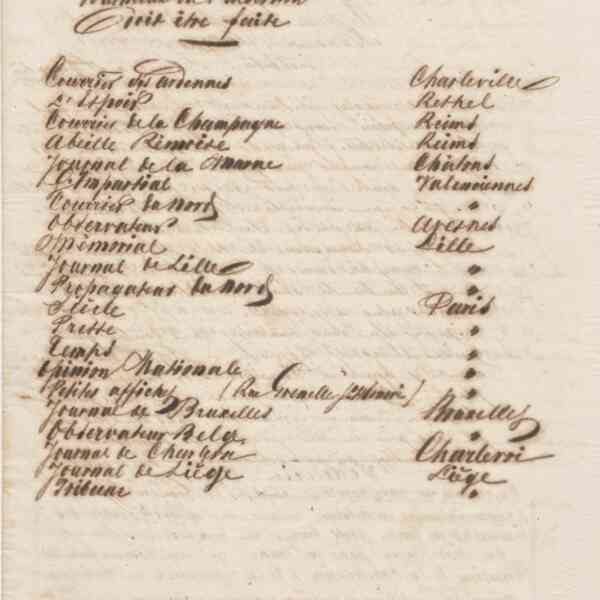 Doit être faite
Courrier des Ardennes Charleville
L'Espoir Rethel
Courrier de la Champagne Reims
Abeille Rémoise Reims
Journal de la Marne Châlons
L'Impartial Valenciennes
Courrier du Nord "
Observateur Avesnes
Mémorial Lille
Journal de Lille "
Propagateur du Nord "
Siècle Paris
Presse "
Temps "
Opinion Nationale "
Petites affiches (Rue Grenelle St Honoré) "
Journal de Bruxelles Bruxelles
Observateur Belge "
Journal de Charleroi Charleroi
Journal de Liège Liège
Tribune "